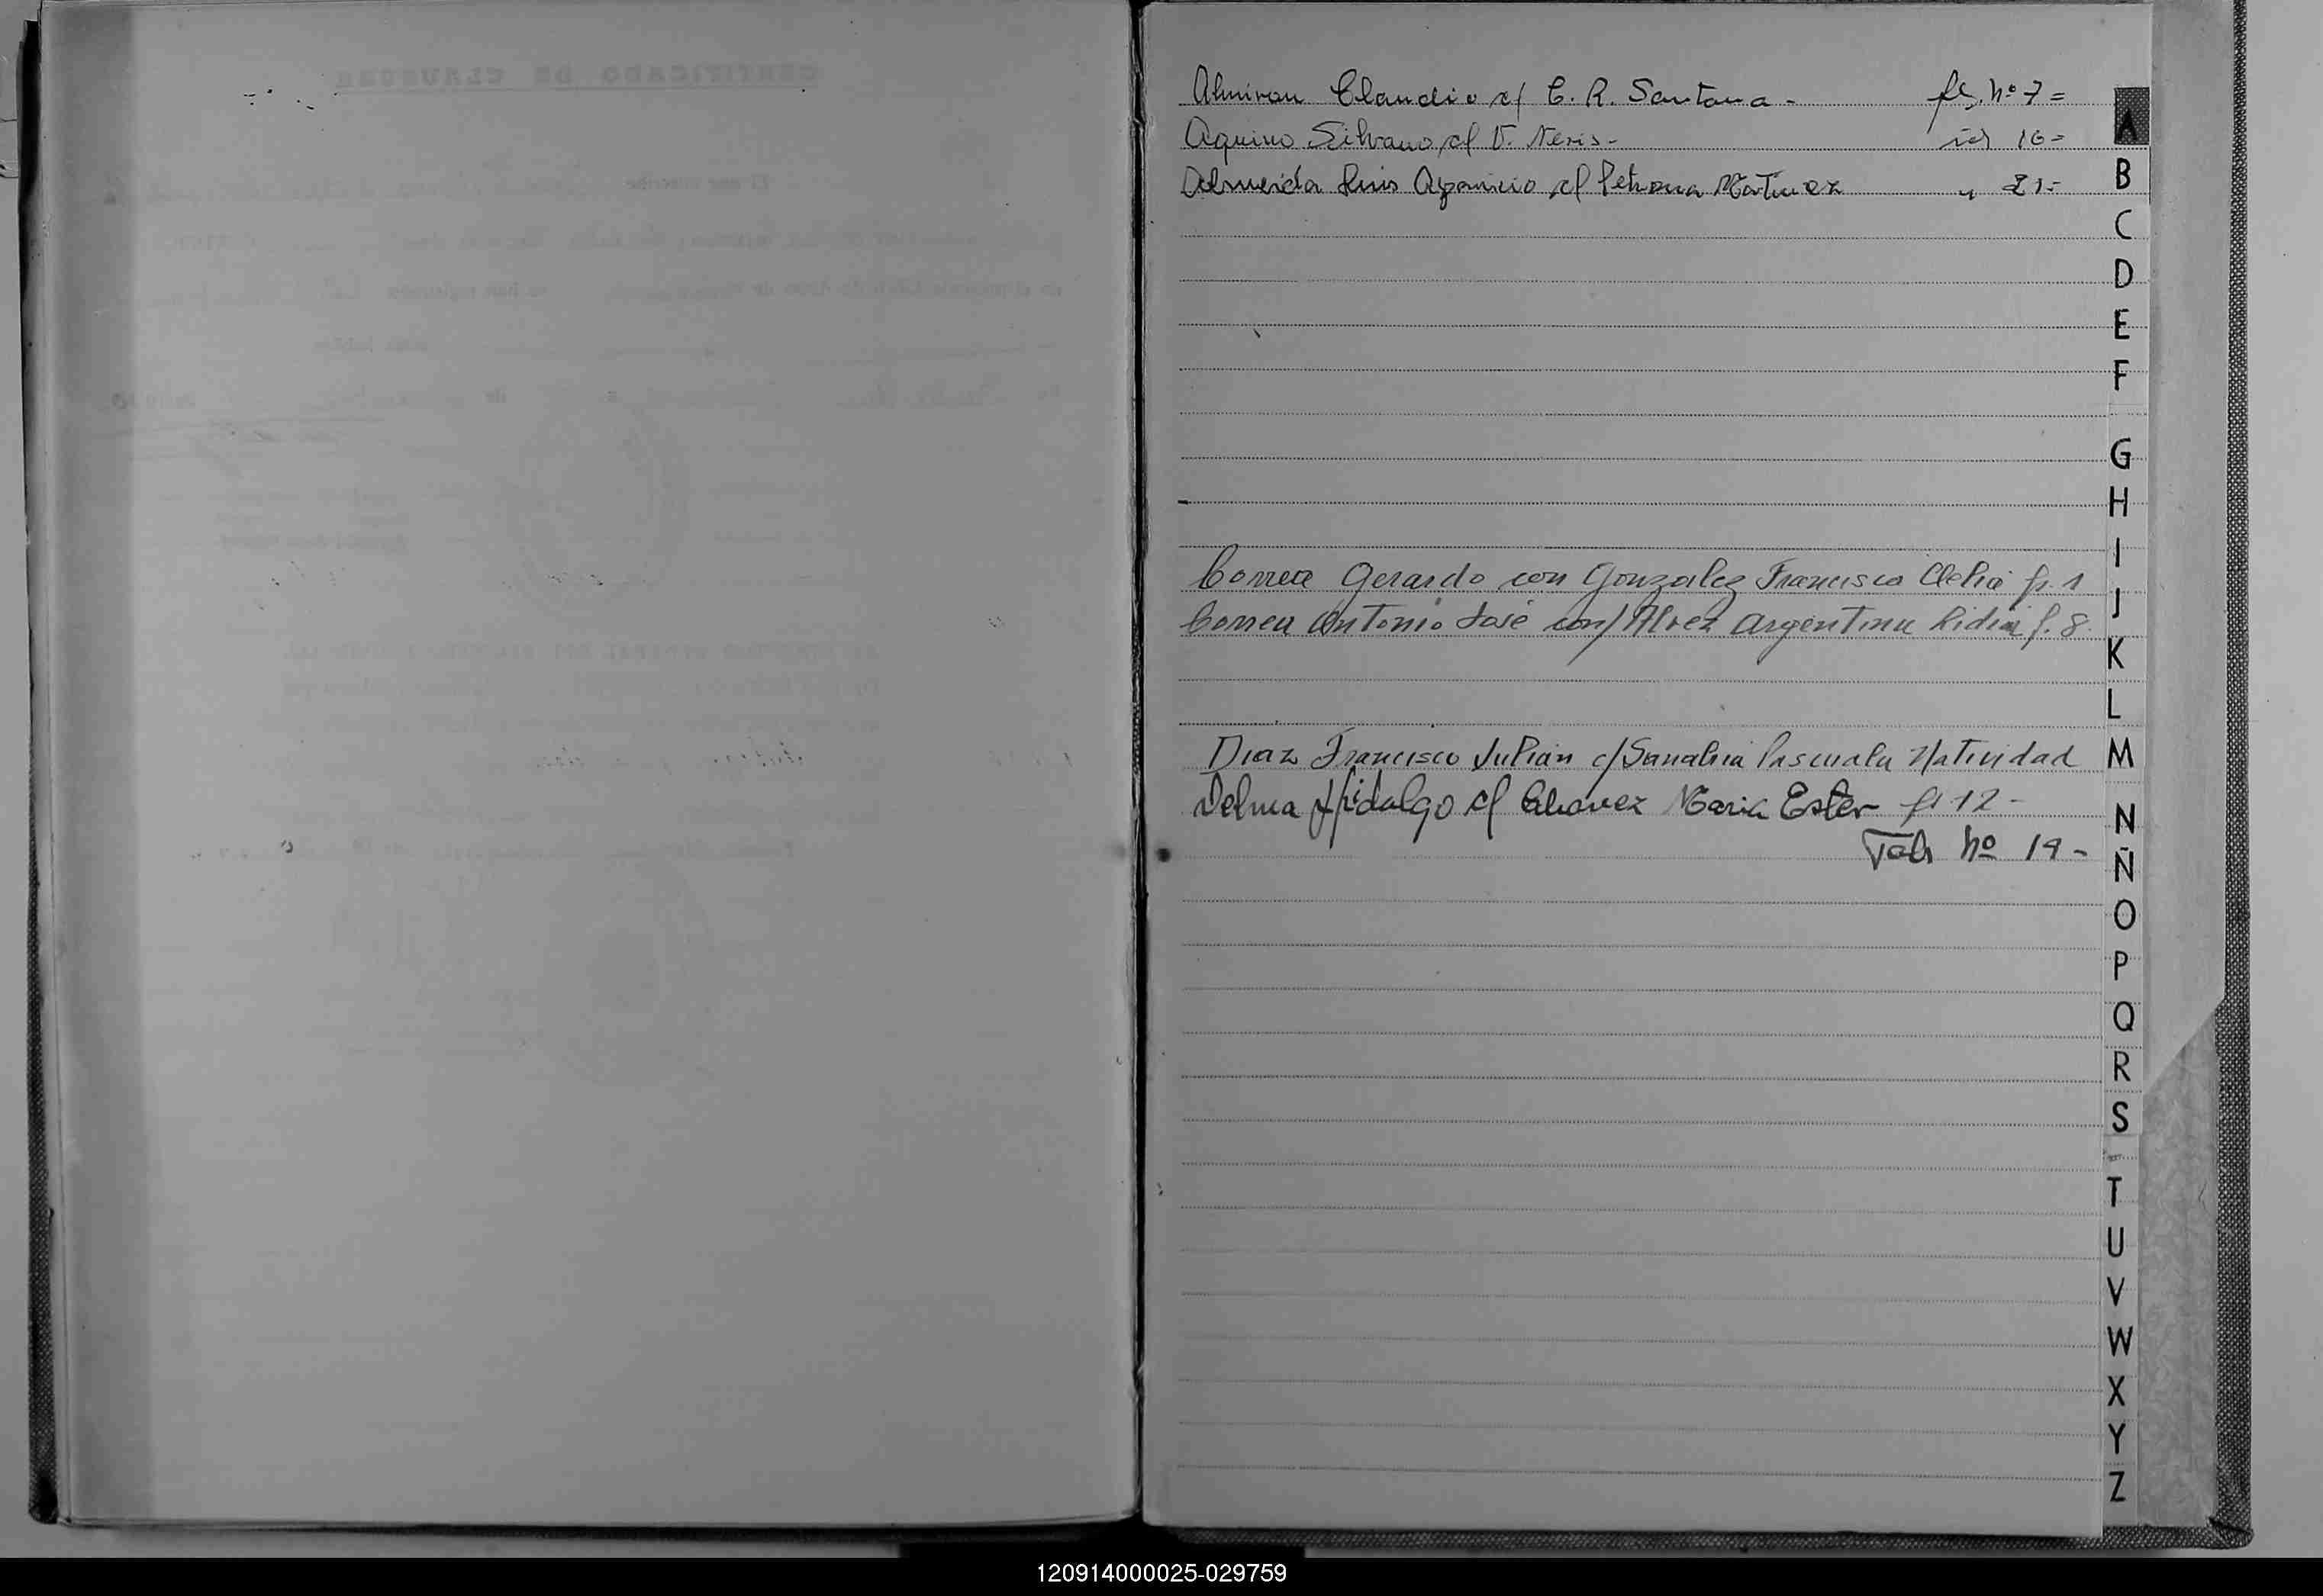 Almiron Claudio c/ C. R. Santana - fs. nº 7 =
Aquino Silvano c/ V. Neris - id 16 =
Almeida Luis Aparicio c/ Petrona Martinez " 21 -
Correa Gerardo con Gonzalez Francisca Clelia fs. 1
Correa Antonio José con/ Alvez Argentina Lidia f. 8.
Diaz Francisco Julian c/ Sanabria Pascuala Natividad
Delma Hidalgo c/ Chavez Maria Ester fs 12 -
nº 19 -
A
B
C
D
E
F
G
H
I
J
K
L
M
N
Ñ
O
P
Q
R
S
T
U
V
W
X
Y
Z
120914000025-029759